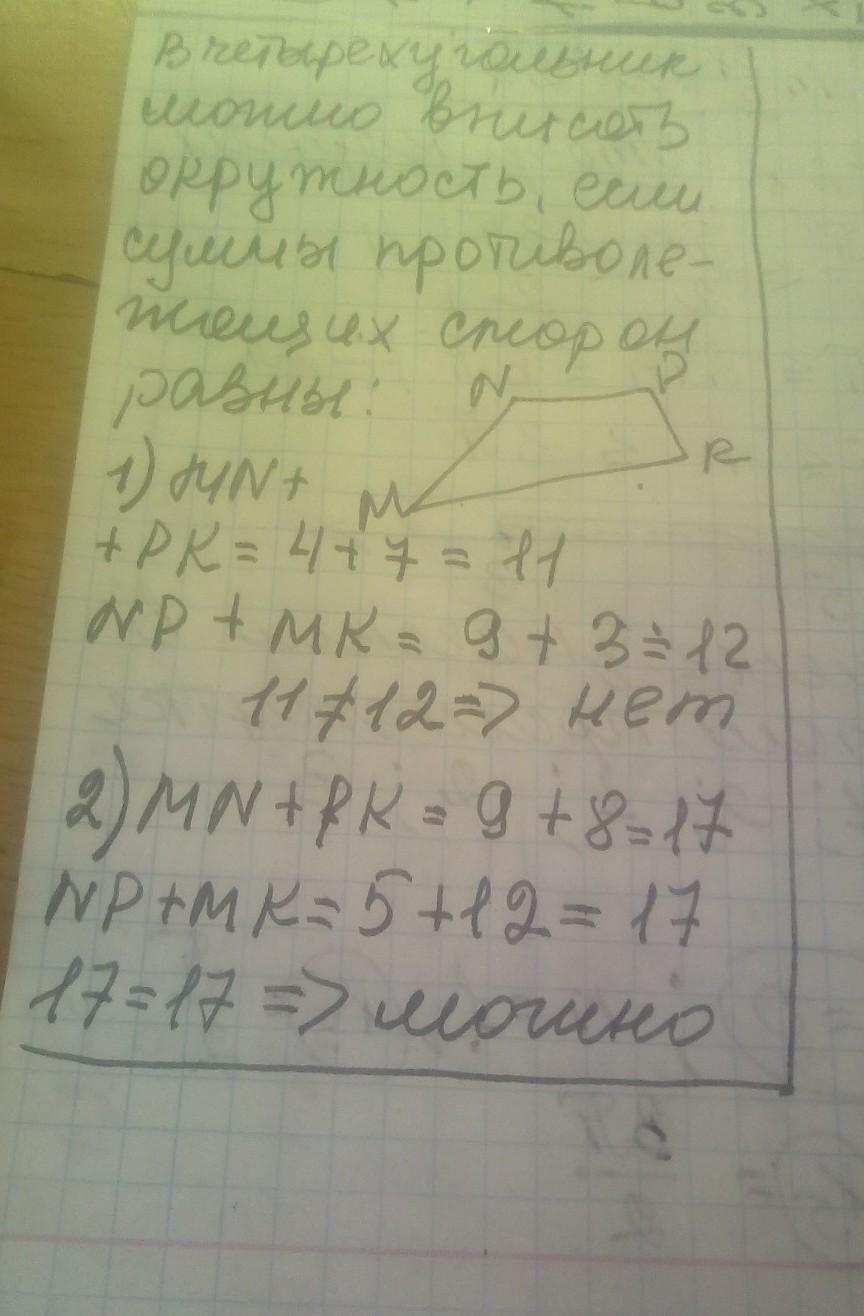 В четырехугольник
можно вписать
окружность, если
суммы противоле-
жащих сторон
равны:
N P
1) MN+
M K
+PK = 4+7 = 11
NP + MK = 9 + 3 = 12
11≠12 => нет
2) MN+PK = 9+8=17
NP+MK=5+12=17
17=17 => можно